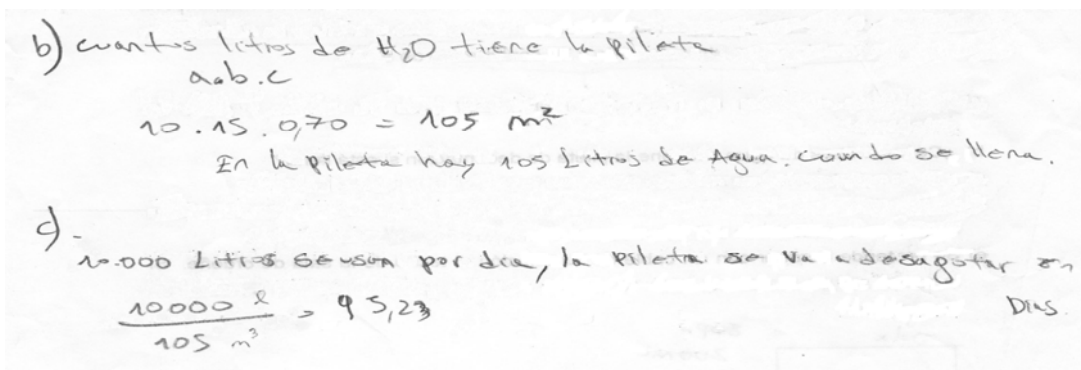 b) cuantos litros de H₂O tiene la pileta
a.b.c
10 . 15 . 0,70 = 105 m²
En la pileta hay 105 Litros de Agua. cuando se llena.
c).
10.000 Litros se usan por dia, la pileta se va a desagotar en
10000 l / 105 m³ = 95,23 Dias.